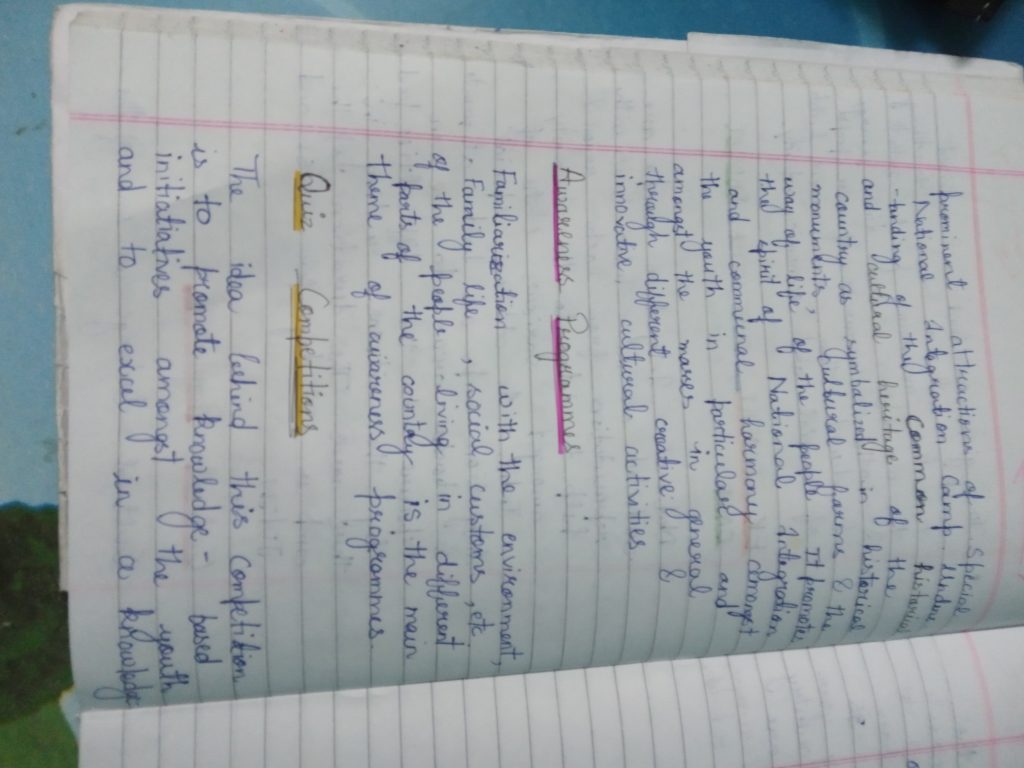 prominent attractions of special
National Integration Camp. Include
-nding of the common historical
and cultural heritage of the
country as symbolized in historical
monuments, cultural forms & the
way of life of the people. It promote
the spirit of National Integration
and communal harmony amongst
the youth in particular and
amongst the masses in general
through different creative &
innovative cultural activities.
Awareness Programmes
Familiarization with the environment,
Family life, social customs, etc
of the people living in different
parts of the country is the main
theme of awareness programmes.
Quiz Competitions
The idea behind this competition
is to promote knowledge - based
initiatives amongst the youth
and to excel in a knowledge